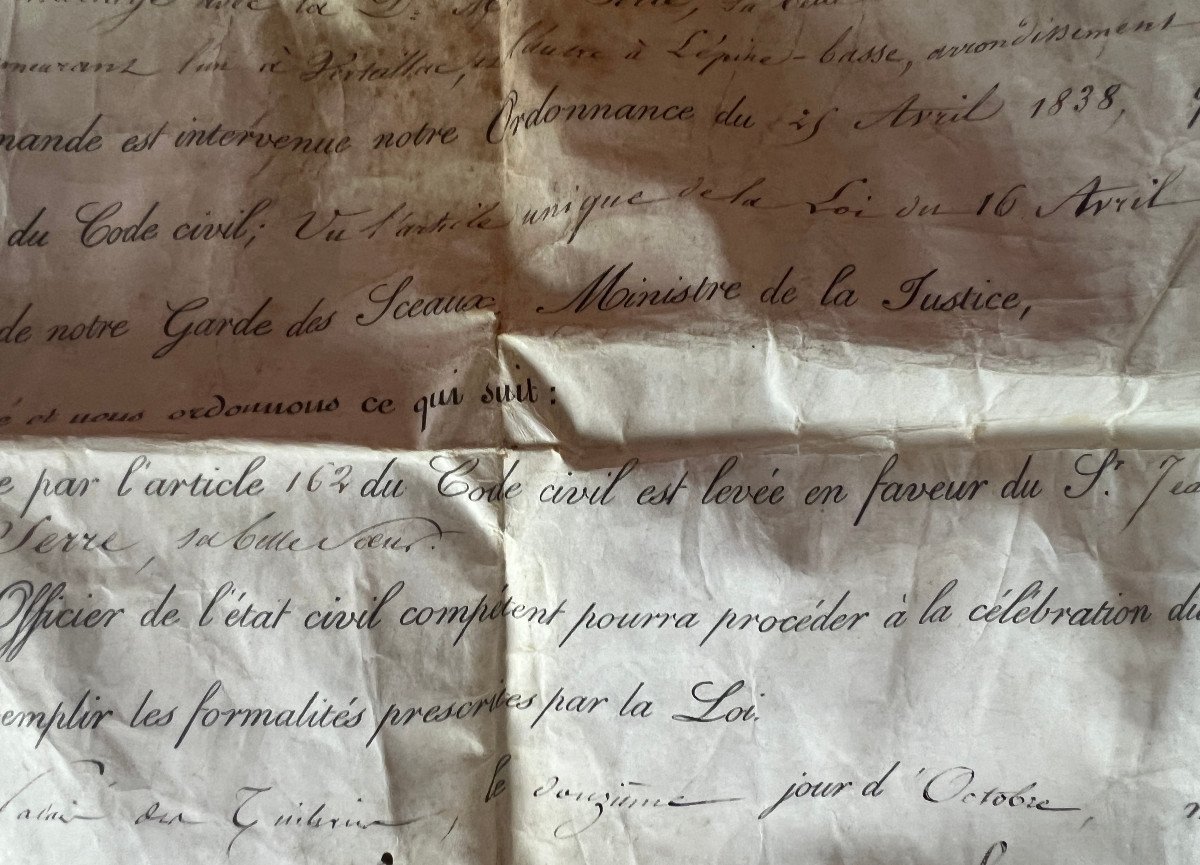 avec la D.
l'un à Verteillac, et l'autre à Lépine-basse, arrondissement
mande est intervenue notre Ordonnance du 25 Avril 1838,
du Code civil; Vu l'article unique de la Loi du 16 Avril
de notre Garde des Sceaux Ministre de la Justice,
é et nous ordonnons ce qui suit:
e par l'article 162 du Code civil est levée en faveur du Sr. Jea
Serre, sa belle Sœur.
Officier de l'état civil compétent pourra procéder à la célébration du
emplir les formalités prescrites par la Loi.
Palais des Tuileries, le douzième jour d'Octobre,